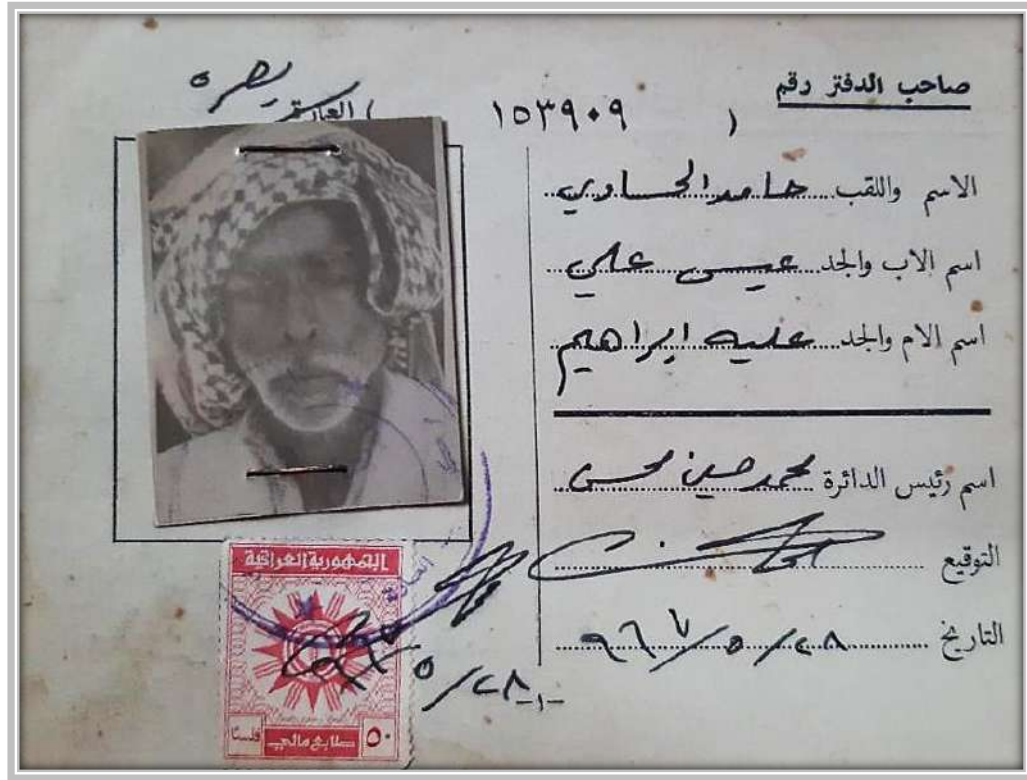 صاحب الدفتر رقم
( ١٥٣٩٠٩ ) العمارة بصره
الاسم واللقب حامد الحساوي
اسم الاب والجد عيسى علي
اسم الام والجد عليه ابراهيم
اسم رئيس الدائرة محمد حسين محسن
التوقيع
التاريخ ٩٦٧/٥/٢٨
الجمهورية العراقية
٩٦٧/٥/٢٨
٥٠ طابع مالي فلسا
-١-